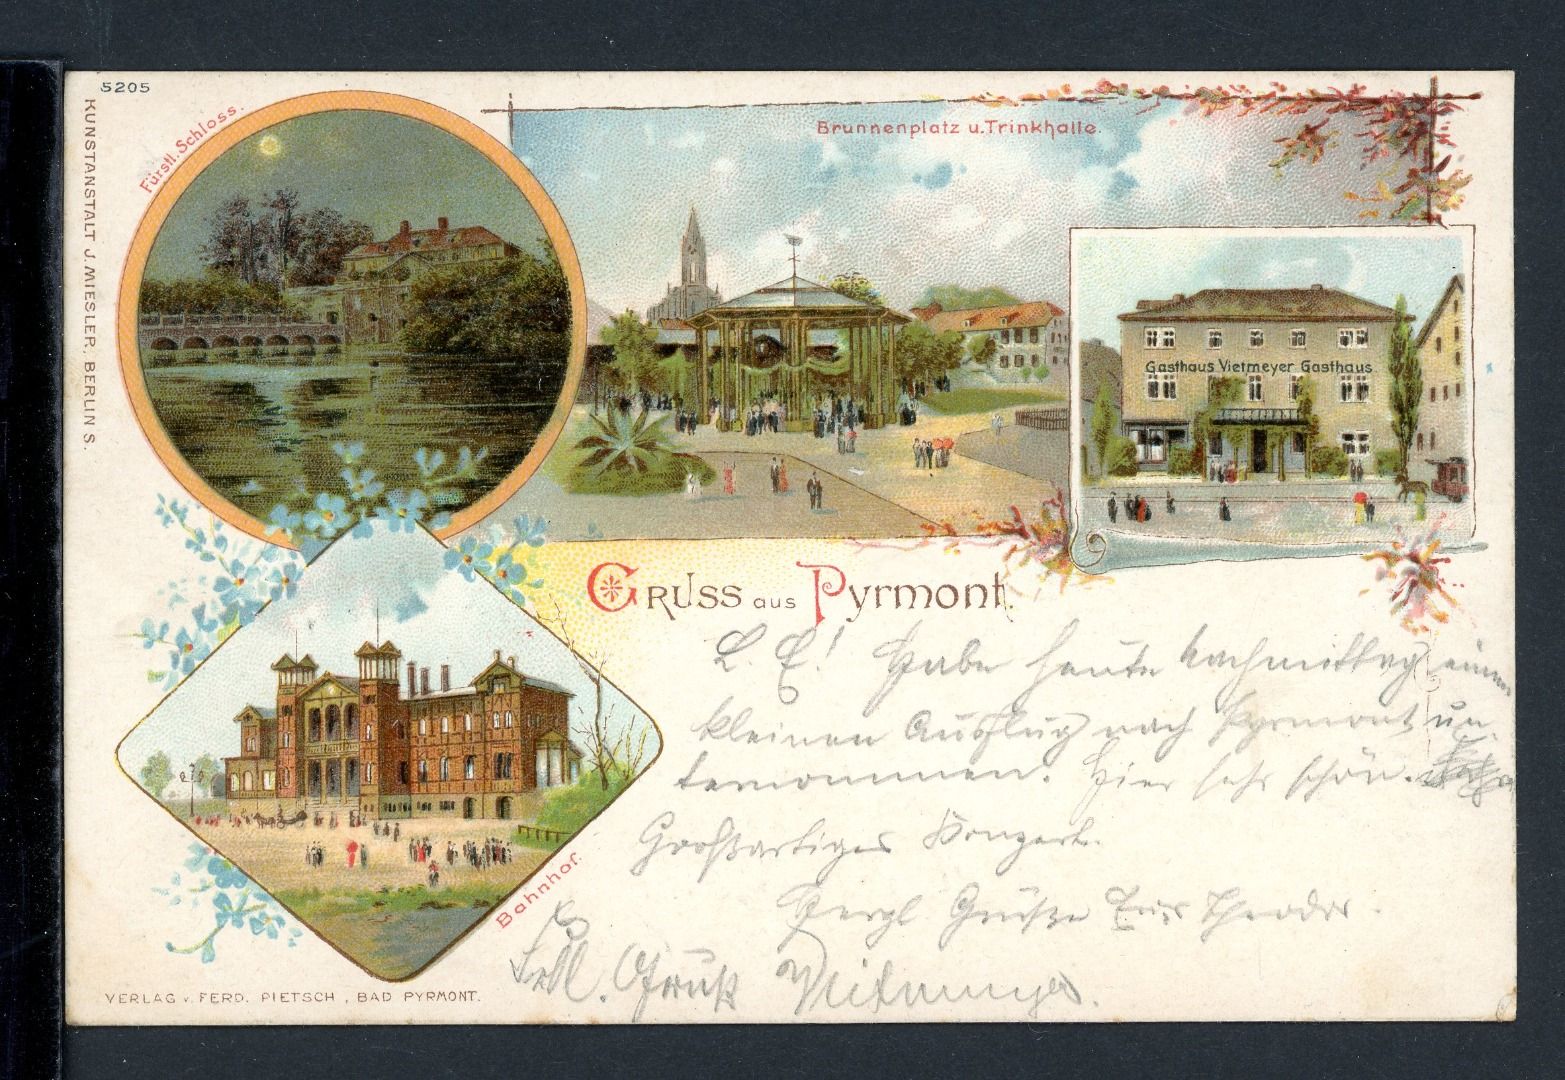 5205
KUNSTANSTALT J. MIESLER, BERLIN S.
Fürstl. Schloss.
Brunnenplatz u. Trinkhalle.
Gasthaus Vietmeyer Gasthaus.
GRUSS aus Pyrmont.
L. E! Habe heute Nachmittag einen
kleinen Ausflug nach Pyrmont un
ternommen. Hier sehr schön.
Großartiges Konzert.
Herzl Grüße Euer Theodor.
Gruß
Bahnhof.
VERLAG v. FERD. PIETSCH, BAD PYRMONT.